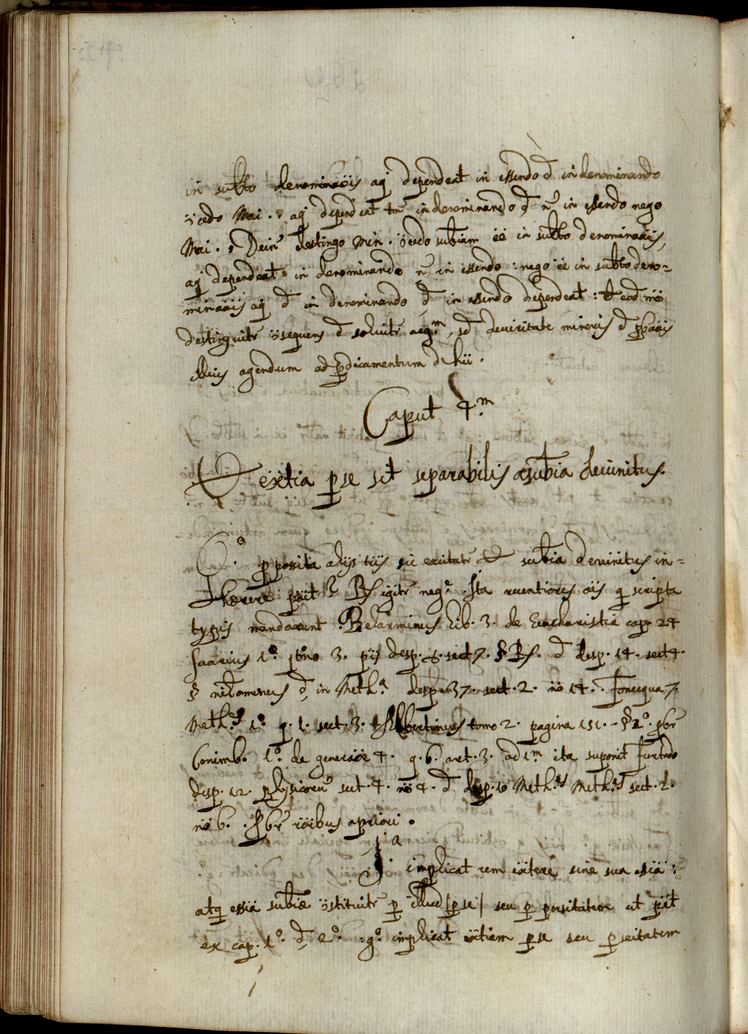 in subto denominaōis aq dependeat in essendo & in denominando
ɔcedo Mai. aq dependeat tm in denominando & n in essendo nego
Mai. Dein destingo Min. ɔcedo subiam ee in subto denominaōis,
aq dependeat in denominando n in essendo : nego ee in subto deno=
minaōis aq & in denominando & in essendo dependeat : & eod mō
destinguitr ɔsequens & solvitr argm, sed de veritate minoris & pbaōis
illeius agendum ad pdicamentum
Caput 4.m
extia p se sit separabilis a subia divinitus.
pposita a tiis sic excitatr subia divinitus in=
hærere poit? Rs. igitr nege. Ita recentiores ōis q scripta
typis mandarunt Belarminus lib. 3. de Eucharistia cap. 24
Suarius 1º tōmo 3. ptis desp. sect. 7. § Rs. & desp. 14. sect. 4.
§ & in Metha desp. 37. sect. 2. nō 14. Fonsequa 7.
Methæ 1º q. 1. sect. 3. Albertinus tomo 2. pagina 151. § 2º. pbr
Conimb. 1º. de generaōe 4. q. 6. art. 3. ad 1m ita suponit furtado
desp. 12. physicorum sect. 4. nō 4. & desp. 10 Methæ sect. 2.
nō 6. pbr rōibus apriori.
1a
implicat rem existere sine sua essia :
atq essia subiæ ɔstituitr p illud (p se) seu p perseitatem ut patet
ex cap. 1º. & 2º. : gº. implicat extiam p se seu pseitatem